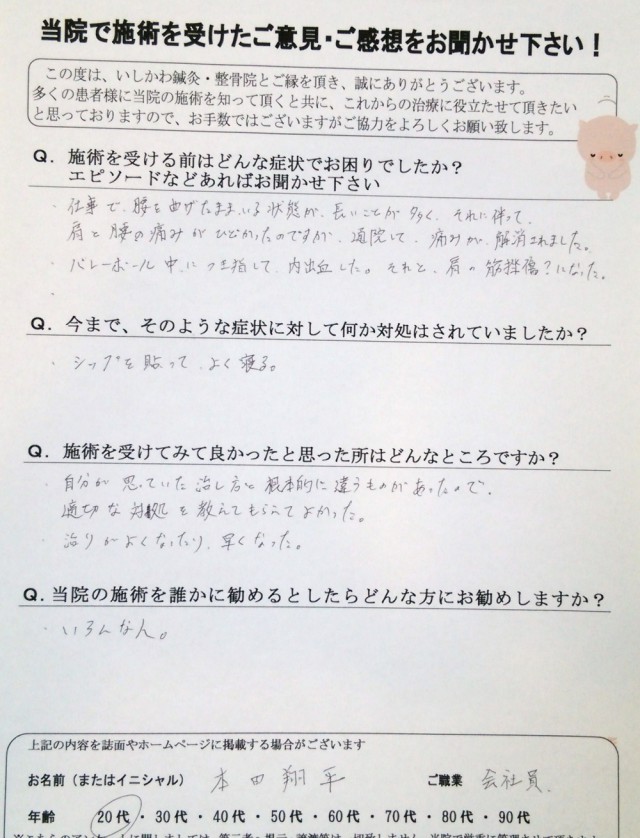 当院で施術を受けたご意見・ご感想をお聞かせ下さい！
この度は、いしかわ鍼灸・整骨院とご縁を頂き、誠にありがとうございます。
多くの患者様に当院の施術を知って頂くと共に、これからの治療に役立たせて頂きたい
と思っておりますので、お手数ではございますがご協力をよろしくお願い致します。
Q．施術を受ける前はどんな症状でお困りでしたか？
エピソードなどあればお聞かせ下さい
・仕事で、腰を曲げたままいる状態が、長いことが多く、それに伴って、
肩と腰の痛みがひどかったのですが、通院して、痛みが、解消されました。
・バレーボール中につき指して、内出血した。それと、肩の筋挫傷？になった。
・
Q．今まで、そのような症状に対して何か対処はされていましたか？
・シップを貼って、よく寝る。
Q．施術を受けてみて良かったと思った所はどんなところですか？
・自分が思っていた治し方と根本的に違うものがあったので、
適切な対処を教えてもらえてよかった。
・治りがよくなったり、早くなった。
Q．当院の施術を誰かに勧めるとしたらどんな方にお勧めしますか？
・いろんな人。
上記の内容を誌面やホームページに掲載する場合がございます
お名前（またはイニシャル） 本田翔平 ご職業 会社員
年齢 20代・30代・40代・50代・60代・70代・80代・90代